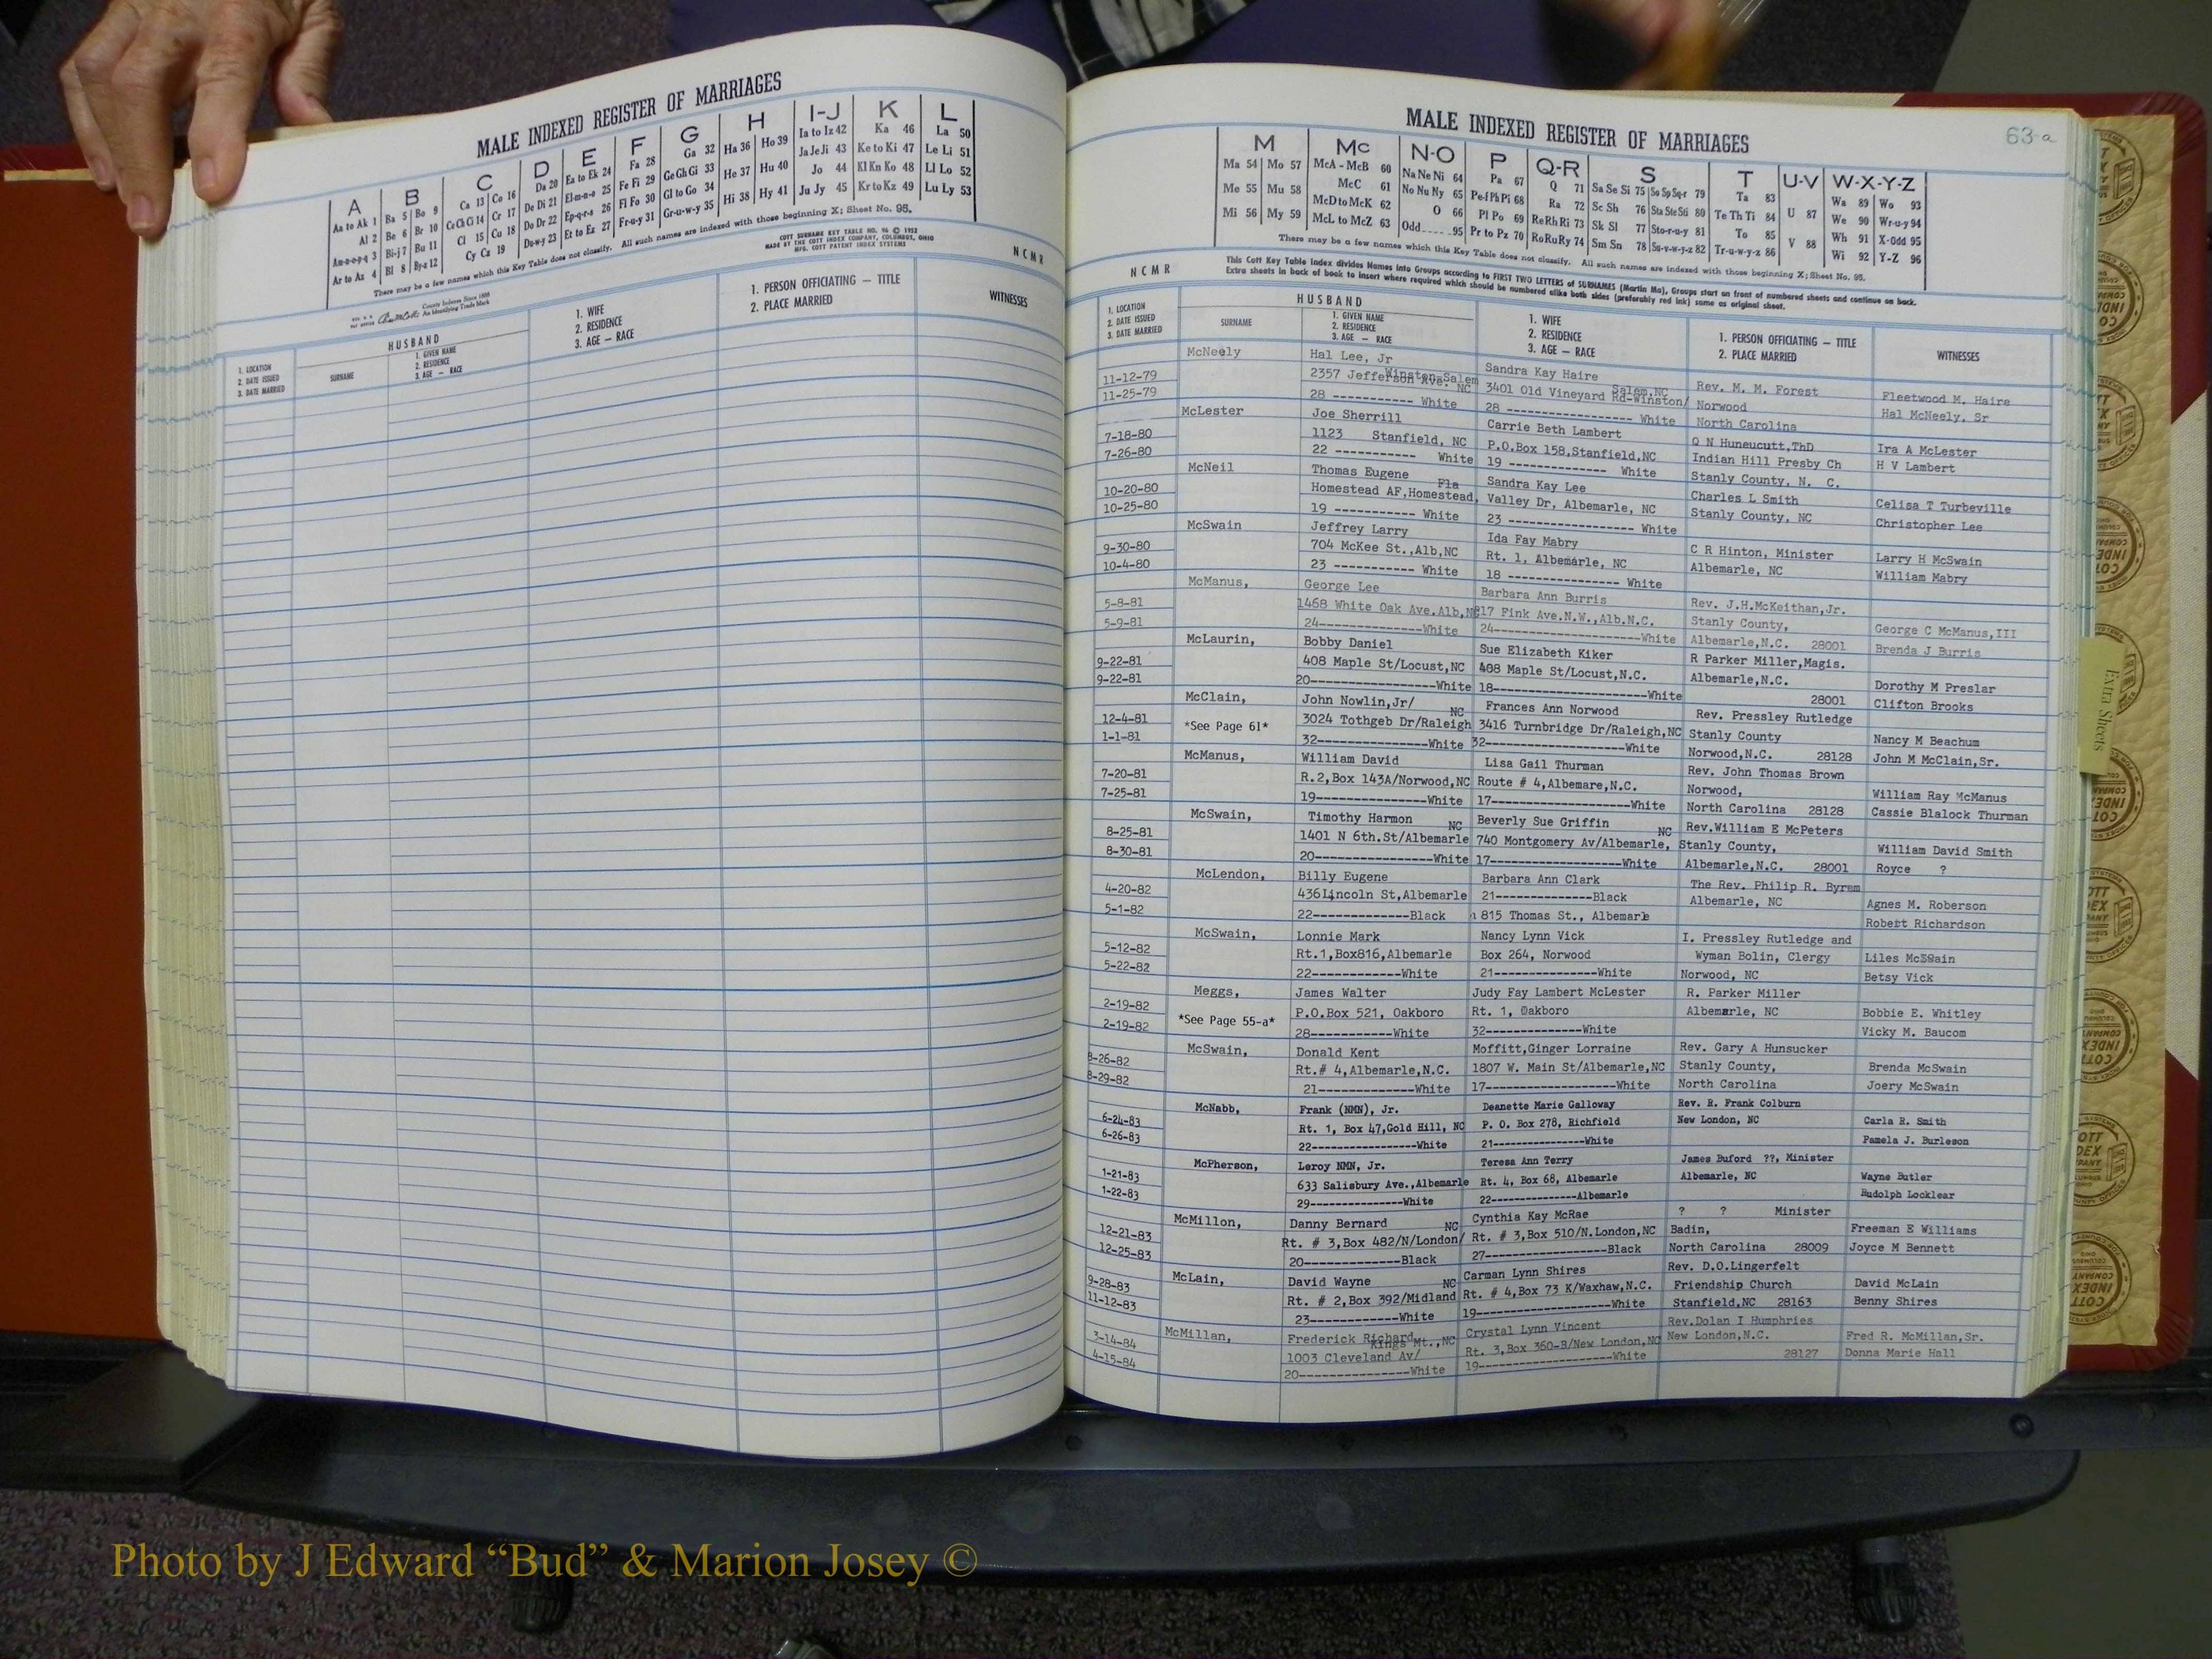 MALE INDEXED REGISTER OF MARRIAGES
A B C D E F G H I-J K L
Aa to Ak 1 Ba 5 Bo 9 Ca 13 Co 16 Da 20 Ea to Ek 24 Fa 28 Ga 32 Ha 36 Ho 39 Ia to Iz 42 Ka 46 La 50
Al 2 Be 6 Br 10 Ce Ch Ci 14 Cr 17 De Di 21 El-m-n-o 25 Fe Fi 29 Ge Gh Gi 33 He 37 Hu 40 Ja Je Ji 43 Ke to Ki 47 Le Li 51
Am-n-o-p-q 3 Bi-j 7 Bu 11 Cl 15 Cu 18 Do Dr 22 Ep-q-r-s 26 Fl Fo 30 Gl to Go 34 Hi 38 Hy 41 Jo 44 Kl Kn Ko 48 Ll Lo 52
Ar to Az 4 Bl 8 By-z 12 Cy Cz 19 Du-w-y 23 Et to Ez 27 Fr-u-y 31 Gr-u-w-y 35 Ju Jy 45 Kr to Kz 49 Lu Ly 53
There may be a few names which this Key Table does not classify. All such names are indexed with those beginning X; Sheet No. 95.
COTT SURNAME KEY TABLE NO. 96 © 1952
MADE BY THE COTT INDEX COMPANY, COLUMBUS, OHIO
MFG. COTT PATENT INDEX SYSTEMS
County Indexes Since 1888
An Identifying Trade Mark
NCMR
1. LOCATION
2. DATE ISSUED
3. DATE MARRIED
HUSBAND
SURNAME
1. GIVEN NAME
2. RESIDENCE
3. AGE — RACE
1. WIFE
2. RESIDENCE
3. AGE — RACE
1. PERSON OFFICIATING — TITLE
2. PLACE MARRIED
WITNESSES
MALE INDEXED REGISTER OF MARRIAGES
63-a
M Mc N-O P Q-R S T U-V W-X-Y-Z
Ma 54 Mo 57 McA - McB 60 Na Ne Ni 64 Pa 67 Q 71 Sa Se Si 75 So Sp Sq-r 79 Ta 83 Wa 89 Wo 93
Me 55 Mu 58 McC 61 No Nu Ny 65 Pe-f Ph Pi 68 Ra 72 Sc Sh 76 Sta Ste Sti 80 Te Th Ti 84 U 87 We 90 Wr-u-y 94
Mi 56 My 59 McD to McK 62 O 66 Pl Po 69 Re Rh Ri 73 Sk Sl 77 Sto-r-u-y 81 To 85 V 88 Wh 91 X-Odd 95
McL to McZ 63 Odd 95 Pr to Pz 70 Ro Ru Ry 74 Sm Sn 78 Su-v-w-y-z 82 Tr-u-w-y-z 86 Wi 92 Y-Z 96
There may be a few names which this Key Table does not classify. All such names are indexed with those beginning X; Sheet No. 95.
This Cott Key Table Index divides Names into Groups according to FIRST TWO LETTERS of SURNAMES (Martin Ma), Groups start on front of numbered sheets and continue on back.
Extra sheets in back of book to insert where required which should be numbered alike both sides (preferably red ink) same as original sheet.
NCMR
1. LOCATION
2. DATE ISSUED
3. DATE MARRIED
HUSBAND
SURNAME
1. GIVEN NAME
2. RESIDENCE
3. AGE — RACE
1. WIFE
2. RESIDENCE
3. AGE — RACE
1. PERSON OFFICIATING — TITLE
2. PLACE MARRIED
WITNESSES
McNeely Hal Lee, Jr Sandra Kay Haire Rev. M. M. Forest Fleetwood M. Haire
11-12-79 2357 Jefferson Ave. NC Winston-Salem 3401 Old Vineyard Rd-Winston/ Salem, NC Norwood Hal McNeely, Sr
11-25-79 28 ----------- White 28 ----------------- White North Carolina
McLester Joe Sherrill Carrie Beth Lambert Q N Huneucutt,ThD Ira A McLester
7-18-80 1123 Stanfield, NC P.O.Box 158,Stanfield,NC Indian Hill Presby Ch H V Lambert
7-26-80 22 ----------- White 19 ------------- White Stanly County, N. C.
McNeil Thomas Eugene Sandra Kay Lee Charles L Smith Celisa T Turbeville
10-20-80 Homestead AF,Homestead, Fla Valley Dr, Albemarle, NC Stanly County, NC Christopher Lee
10-25-80 19 ----------- White 23 ----------------- White
McSwain Jeffrey Larry Ida Fay Mabry C R Hinton, Minister Larry H McSwain
9-30-80 704 McKee St.,Alb,NC Rt. 1, Albemarle, NC Albemarle, NC William Mabry
10-4-80 23 ----------- White 18 --------------- White
McManus, George Lee Barbara Ann Burris Rev. J.H.McKeithan,Jr.
5-8-81 1468 White Oak Ave.Alb,NC 817 Fink Ave.N.W.,Alb.N.C. Stanly County, George C McManus,III
5-9-81 24--------------White 24--------------------White Albemarle,N.C. 28001 Brenda J Burris
McLaurin, Bobby Daniel Sue Elizabeth Kiker R Parker Miller,Magis.
9-22-81 408 Maple St/Locust,NC 408 Maple St/Locust,N.C. Albemarle,N.C. Dorothy M Preslar
9-22-81 20---------------White 18---------------------White 28001 Clifton Brooks
McClain, John Nowlin,Jr/ NC Frances Ann Norwood Rev. Pressley Rutledge
12-4-81 *See Page 61* 3024 Tothgeb Dr/Raleigh 3416 Turnbridge Dr/Raleigh,NC Stanly County Nancy M Beachum
1-1-81 32---------------White 32--------------------White Norwood,N.C. 28128 John M McClain,Sr.
McManus, William David Lisa Gail Thurman Rev. John Thomas Brown
7-20-81 R.2,Box 143A/Norwood,NC Route # 4,Albemare,N.C. Norwood, William Ray McManus
7-25-81 19---------------White 17--------------------White North Carolina 28128 Cassie Blalock Thurman
McSwain, Timothy Harmon NC Beverly Sue Griffin NC Rev.William E McPeters
8-25-81 1401 N 6th.St/Albemarle 740 Montgomery Av/Albemarle, Stanly County, William David Smith
8-30-81 20----------------White 17-------------------White Albemarle,N.C. 28001 Royce ?
McLendon, Billy Eugene Barbara Ann Clark The Rev. Philip R. Byrem
4-20-82 436Lincoln St,Albemarle 21-------------Black Albemarle, NC Agnes M. Roberson
5-1-82 22-------------Black 815 Thomas St., Albemarle Robert Richardson
McSwain, Lonnie Mark Nancy Lynn Vick I. Pressley Rutledge and
5-12-82 Rt.1,Box816,Albemarle Box 264, Norwood Wyman Bolin, Clergy Liles McSwain
5-22-82 22------------White 21--------------White Norwood, NC Betsy Vick
Meggs, James Walter Judy Fay Lambert McLester R. Parker Miller
2-19-82 *See Page 55-a* P.O.Box 521, Oakboro Rt. 1, Oakboro Albemarle, NC Bobbie E. Whitley
2-19-82 28-----------White 32-------------White Vicky M. Baucom
McSwain, Donald Kent Moffitt,Ginger Lorraine Rev. Gary A Hunsucker
8-26-82 Rt.# 4,Albemarle,N.C. 1807 W. Main St/Albemarle,NC Stanly County, Brenda McSwain
8-29-82 21-------------White 17------------------White North Carolina Joery McSwain
McNabb, Frank (NMN), Jr. Deanette Marie Galloway Rev. R. Frank Colburn
6-24-83 Rt. 1, Box 47,Gold Hill, NC P. O. Box 278, Richfield New London, NC Carla R. Smith
6-26-83 22---------------White 21---------------White Pamela J. Burleson
McPherson, Leroy NMN, Jr. Teresa Ann Terry James Buford ??, Minister
1-21-83 633 Salisbury Ave.,Albemarle Rt. 4, Box 68, Albemarle Albemarle, NC Wayne Butler
1-22-83 29--------------White 22--------------Albemarle Rudolph Locklear
McMillon, Danny Bernard NC Cynthia Kay McRae ? ? Minister
12-21-83 Rt. # 3,Box 482/N/London/ Rt. # 3,Box 510/N.London,NC Badin, Freeman E Williams
12-25-83 20--------------Black 27------------------Black North Carolina 28009 Joyce M Bennett
McLain, David Wayne NC Carman Lynn Shires Rev. D.O.Lingerfelt
9-28-83 Rt. # 2,Box 392/Midland Rt. # 4,Box 73 K/Waxhaw,N.C. Friendship Church David McLain
11-12-83 23--------------White 19-------------------White Stanfield,NC 28163 Benny Shires
McMillan, Frederick Richard Crystal Lynn Vincent Rev.Dolan I Humphries
3-14-84 1003 Cleveland Av/ Kings Mt.,NC Rt. 3,Box 360-B/New London,NC New London,N.C. Fred R. McMillan,Sr.
4-15-84 20----------------White 19--------------------White 28127 Donna Marie Hall
Extra Sheets
Photo by J Edward “Bud” & Marion Josey ©